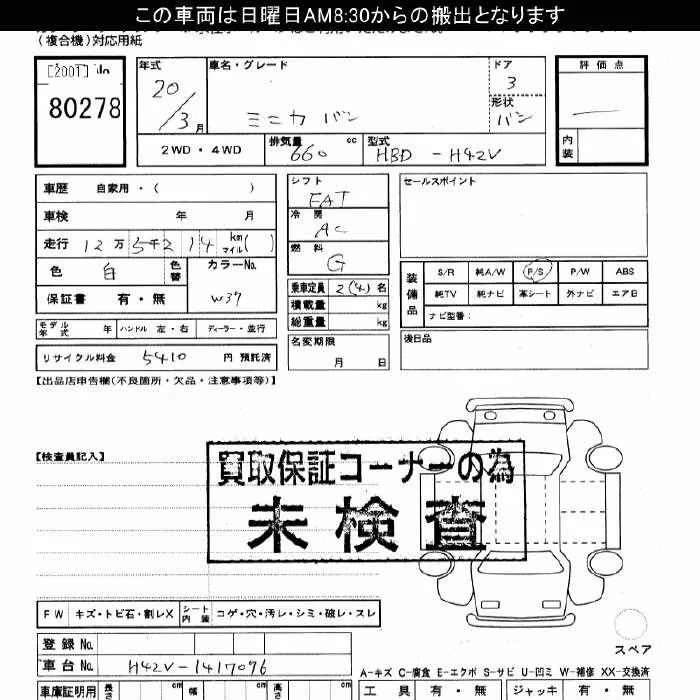 この車両は日曜日AM8:30からの搬出となります
(複合機)対応用紙
80278
年式 20/3月
車名・グレード ミニカ バン
ドア 3
形状 バン
評価点 —
内装
2WD・4WD
排気量 660 cc
型式 HBD - H42V
車歴 自家用・( )
車検 年 月
走行 12万5千214 km マイル( )
色 白 色替
カラーNo. W37
保証書 有・無
シフト FAT
冷房 AC
燃料 G
乗車定員 2(4)名
積載量 kg
総重量 kg
名変期限 月 日
セールスポイント
装備品
S/R 純A/W P/S P/W ABS
純TV 純ナビ 革シート 外ナビ エアB
ナビ型番:
後日品
モデル年式 年 ハンドル 左・右 ディーラー・並行
リサイクル料金 5410 円 預託済
【出品店申告欄(不良箇所・欠品・注意事項等)】
【検査員記入】
買取保証コーナーの為
未検査
FW キズ・トビ石・割レX シート内装 コゲ・穴・汚レ・シミ・破レ・スレ
登録No.
車台No. H42V-1417096
スペア
A-キズ C-腐食 E-エクボ S-サビ U-凹ミ W-補修 XX-交換済
車庫証明用 長さ cm 幅 cm 高さ cm
工具 有・無 ジャッキ 有・無